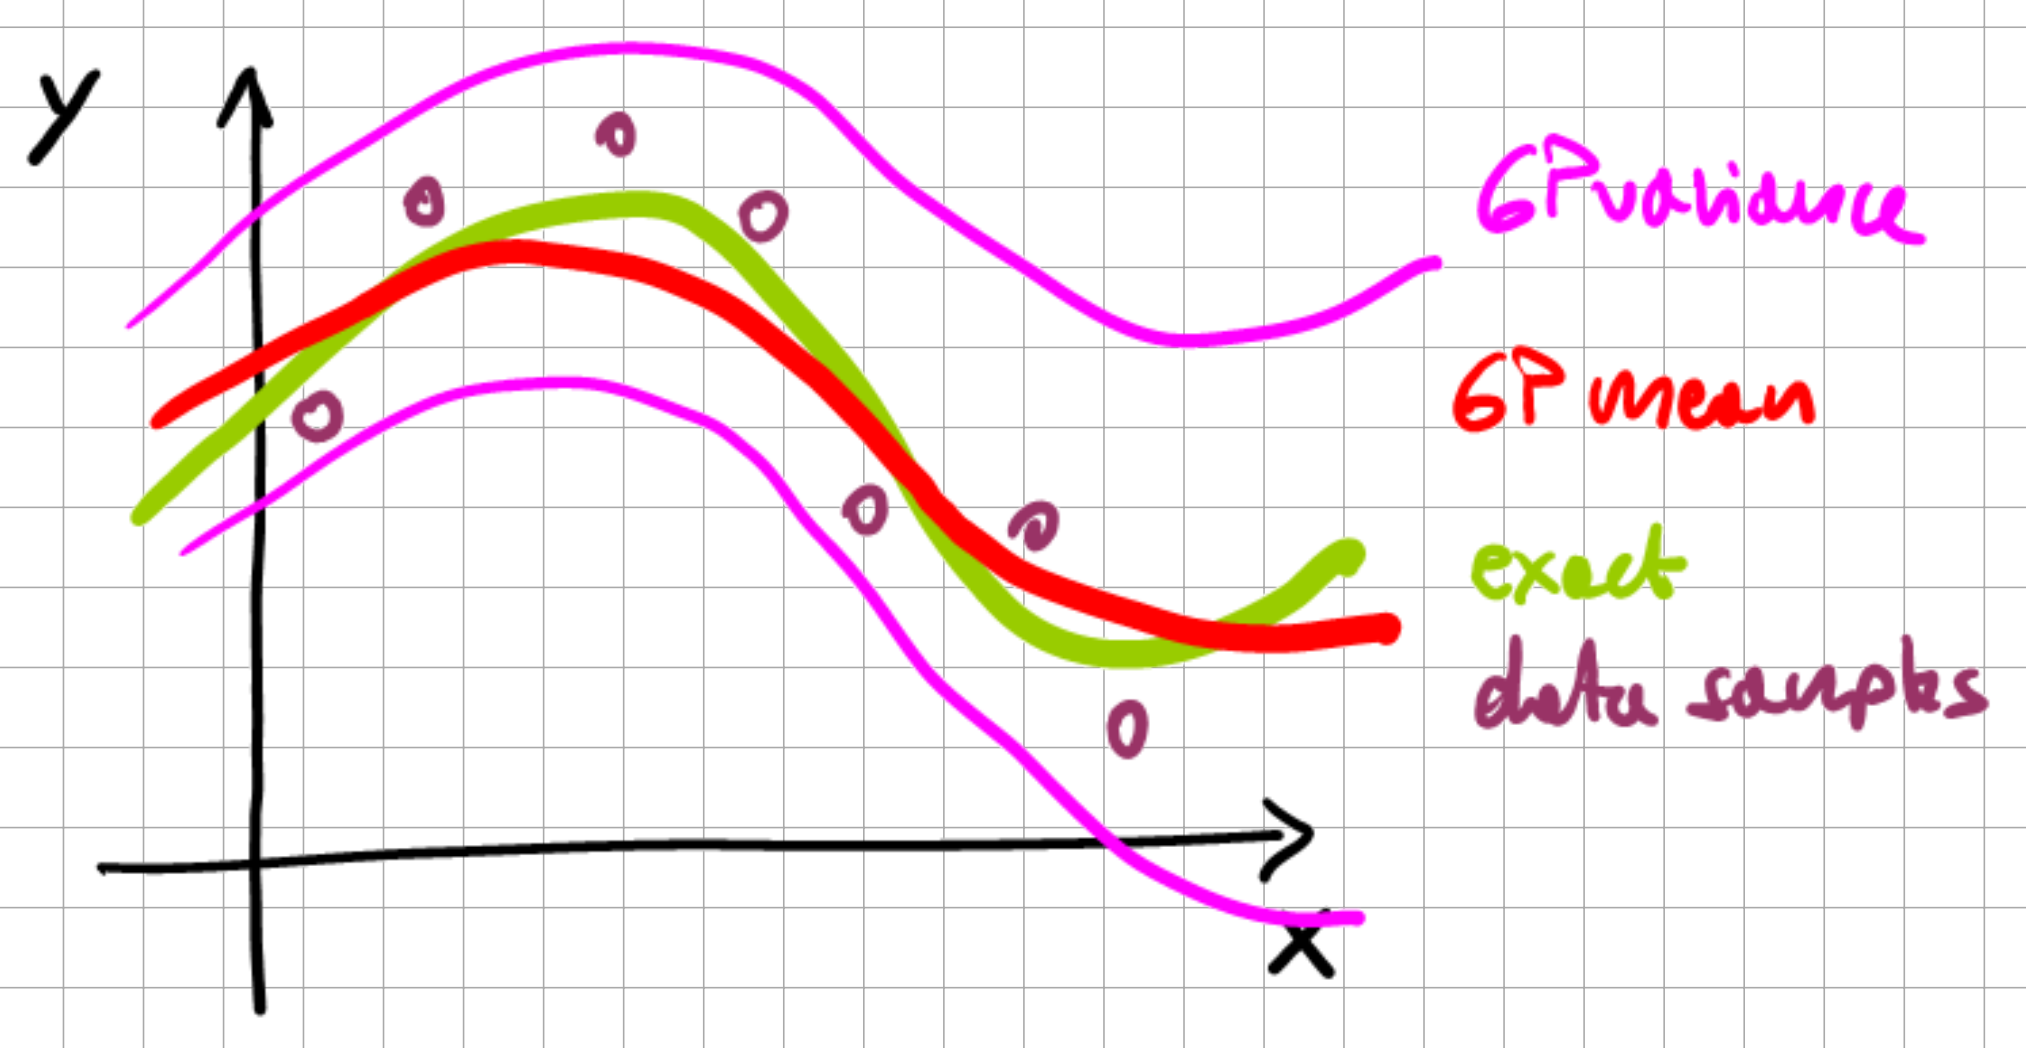 y
GP variance
GP mean
exact
data samples
x